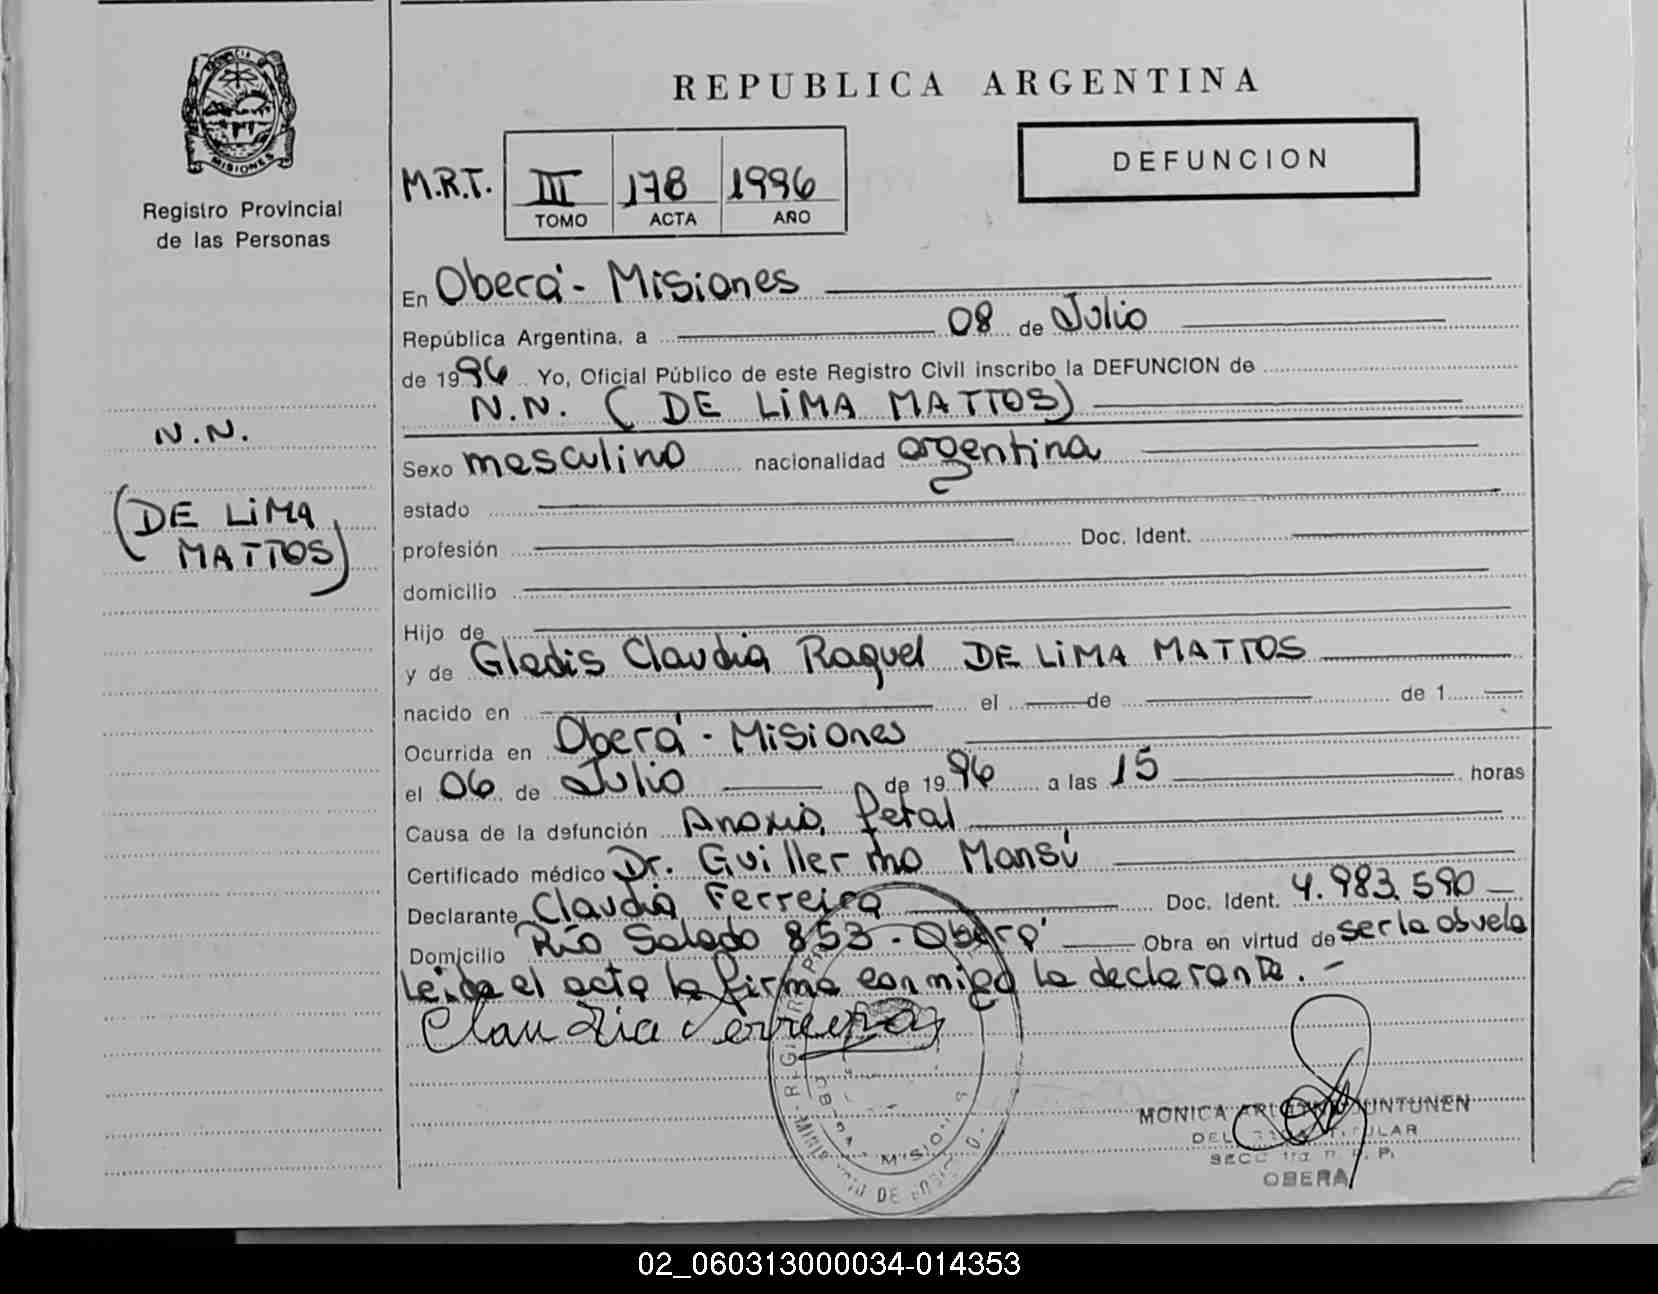 PROVINCIA DE
MISIONES
Registro Provincial
de las Personas
N.N.
(DE LIMA
MATTOS)
REPUBLICA ARGENTINA
DEFUNCION
M.R.T. III 178 1996
TOMO ACTA AÑO
En Oberá - Misiones
República Argentina, a 08 de Julio
de 1996 Yo, Oficial Público de este Registro Civil inscribo la DEFUNCION de
N.N. (DE LIMA MATTOS)
Sexo masculino nacionalidad argentina
estado
profesión Doc. Ident.
domicilio
Hijo de
y de Gladis Claudia Raquel DE LIMA MATTOS
nacido en el de de 1
Ocurrida en Oberá - Misiones
el 06 de Julio de 1996 a las 15 horas
Causa de la defunción Anoxia fetal
Certificado médico Dr. Guillermo Monsú
Declarante Claudia Ferreira Doc. Ident. 4.983.590
Domicilio Río Salado 853 - Oberá Obra en virtud de ser la abuela
Leída el acta la firma conmigo la declarante. -
Claudia Ferreira
MONICA JUNTUNEN
OBERA
02_060313000034-014353